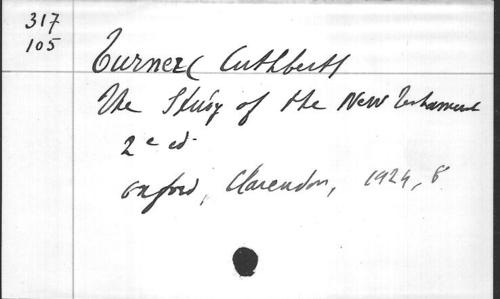 317
105
Turner (Cuthbert)
The Study of the New Testament
2e ed.
Oxford, Clarendon, 1924, 8